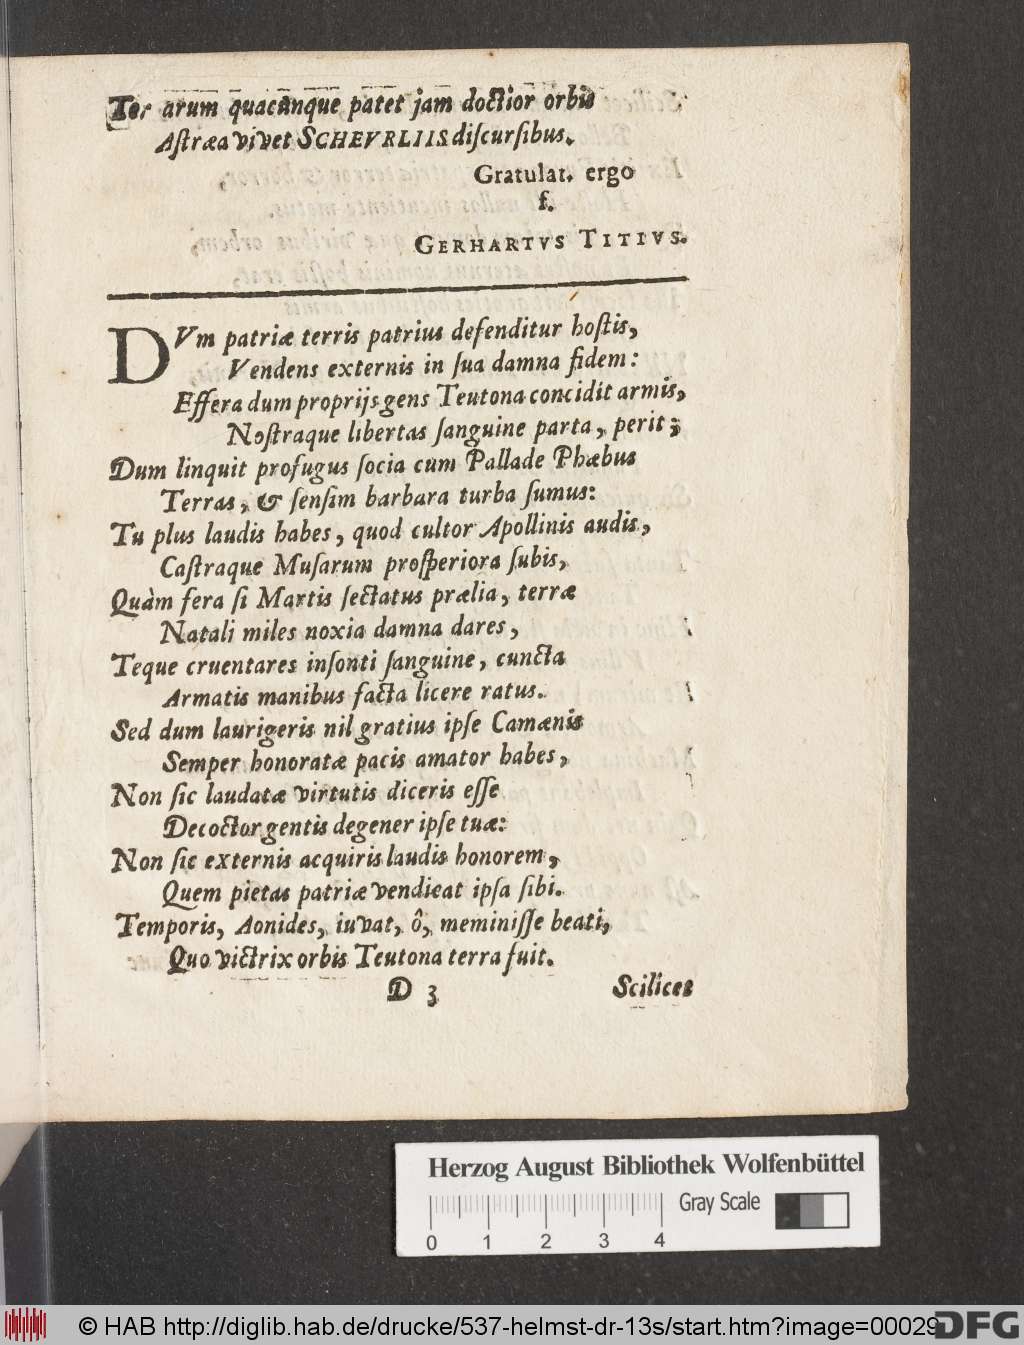 Ter arum quacunque patet jam doctior orbis
Astræa vivet SCHEVRLIIS discursibus.
Gratulat. ergo
f.
GERHARTVS TITIVS.
DVm patriæ terris patrius defenditur hostis,
Vendens externis in sua damna fidem:
Effera dum proprijs gens Teutona concidit armis,
Nostraque libertas sanguine parta, perit;
Dum linquit profugus socia cum Pallade Phæbus
Terras, & sensim barbara turba sumus:
Tu plus laudis habes, quod cultor Apollinis audis,
Castraque Musarum prosperiora subis,
Quàm fera si Martis sectatus prælia, terræ
Natali miles noxia damna dares,
Teque cruentares insonti sanguine, cuncta
Armatis manibus facta licere ratus.
Sed dum laurigeris nil gratius ipse Camænis
Semper honoratæ pacis amator habes,
Non sic laudatæ virtutis diceris esse
Decoctor gentis degener ipse tuæ:
Non sic externis acquiris laudis honorem,
Quem pietas patriæ vendicat ipsa sibi.
Temporis, Aonides, iuvat, ô, meminisse beati,
Quo victrix orbis Teutona terra fuit.
D 3 Scilicet
Herzog August Bibliothek Wolfenbüttel
Gray Scale
0 1 2 3 4
© HAB http://diglib.hab.de/drucke/537-helmst-dr-13s/start.htm?image=00029
DFG